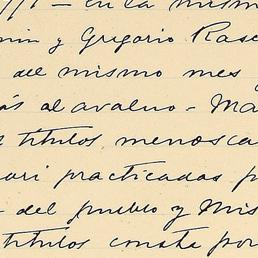 en la mism
y Gregorio Rase
del mismo mes y
al avaluo - Ma
titulos menosca
ari practicadas p
del pueblo y Mis
titulos consta por